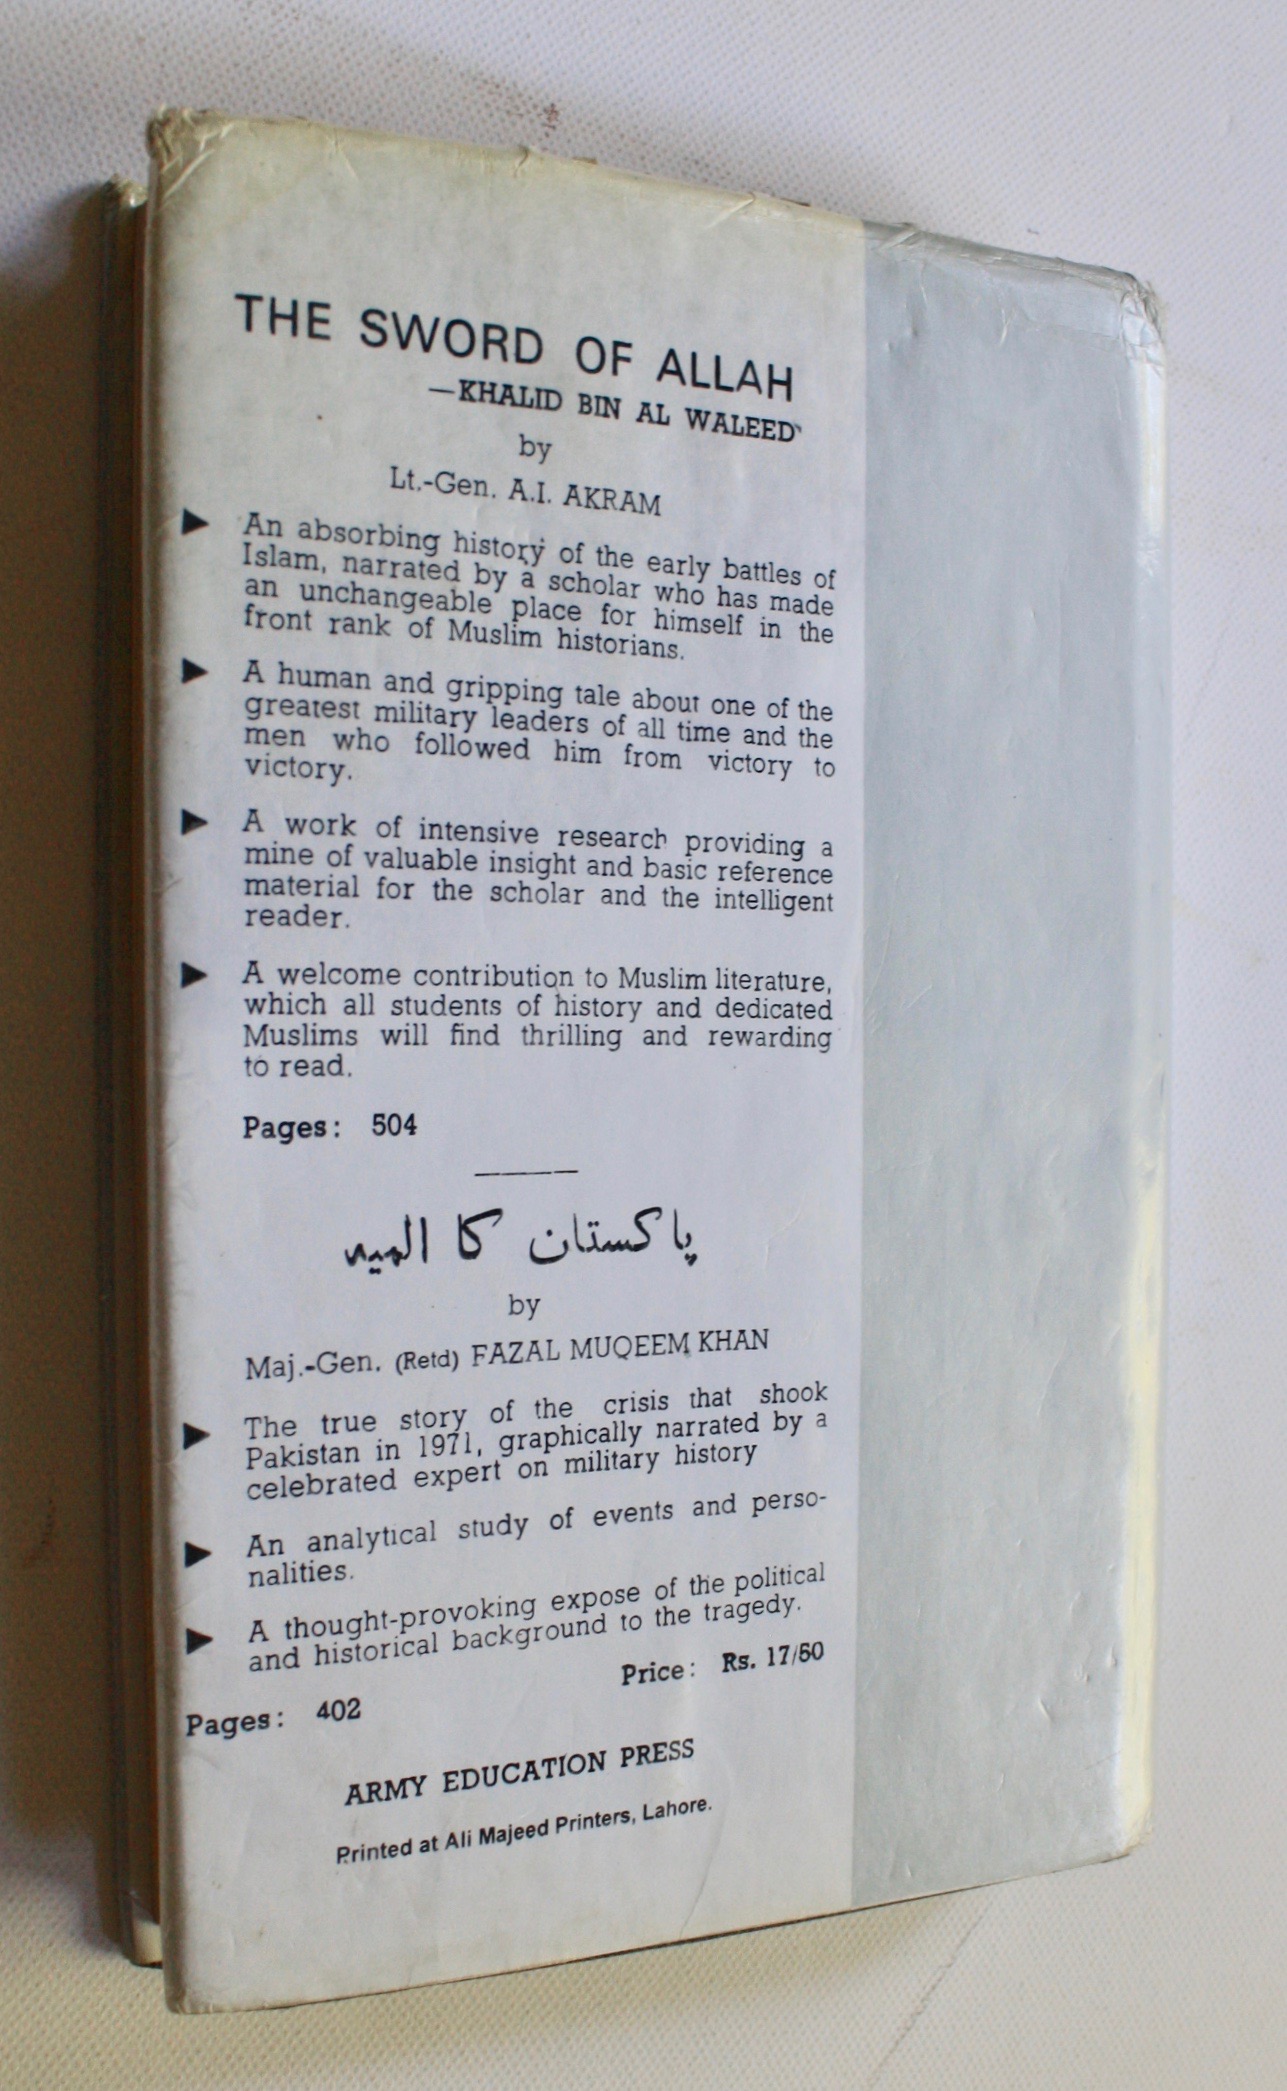 THE SWORD OF ALLAH
—KHALID BIN AL WALEED
by
Lt.-Gen. A.I. AKRAM
▶ An absorbing history of the early battles of
Islam, narrated by a scholar who has made
an unchangeable place for himself in the
front rank of Muslim historians.
▶ A human and gripping tale about one of the
greatest military leaders of all time and the
men who followed him from victory to
victory.
▶ A work of intensive research providing a
mine of valuable insight and basic reference
material for the scholar and the intelligent
reader.
▶ A welcome contribution to Muslim literature,
which all students of history and dedicated
Muslims will find thrilling and rewarding
to read.
Pages: 504
پاکستان کا المیہ
by
Maj.-Gen. (Retd) FAZAL MUQEEM KHAN
▶ The true story of the crisis that shook
Pakistan in 1971, graphically narrated by a
celebrated expert on military history
▶ An analytical study of events and perso-
nalities.
▶ A thought-provoking expose of the political
and historical background to the tragedy.
Price: Rs. 17/50
Pages: 402
ARMY EDUCATION PRESS
Printed at Ali Majeed Printers, Lahore.